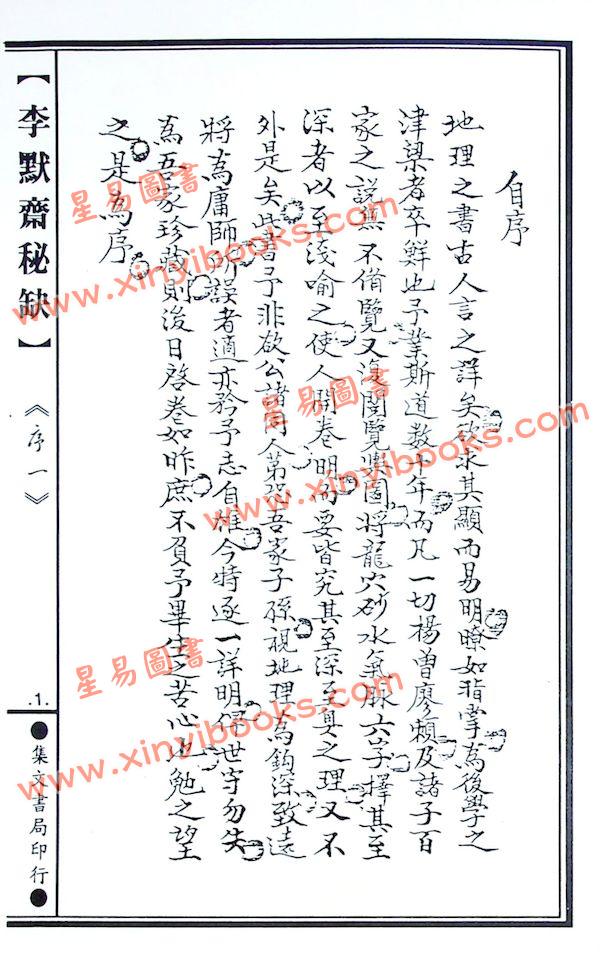 自序
地理之書古人言之詳矣欲求其顯而易明瞭如指掌為後學之
津梁者卒鮮也予業斯道數十年而凡一切楊曾廖賴及諸子百
家之說無不俻覽又復閱覽輿圖將龍穴砂水氣脉六字擇其至
深者以至淺喻之使人開卷明而要皆究其至深至真之理又不
外是矣此書予非欲公諸同人第恐吾家子孫視地理為鈎深致遠
將為庸師所誤者適亦矜予志自雄今特逐一詳明俾世守勿失
為吾家珍藏則後日啓卷如昨庶不負予畢生之苦心也勉之望
之是為序
【李默齋秘缺】
《序一》
.1.
●集文書局印行●
星易圖書
www.xinyibooks.com
星易圖書
www.xinyibooks.com
星易圖書
www.xinyibooks.com